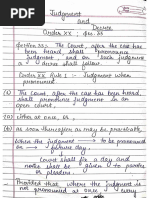 Judgment
and
Decree
Order XX ; Sec. 33
Section 33: The Court, after the case has
been heard shall pronounce
Judgment, and on such judgment
a Decree shall follow.
Order XX Rule 1 : Judgment when
pronounced
(1) The Court after the case has been heard,
shall pronounce judgment in an
open court:
(2) Either at once, or,
(3) As soon thereafter as may be practicable,
Where the judgment is to be pronounced
or future day
Court shall fix a day and
notice shall be given to parties
or pleaders.
Provided that where the judgment is
not pronounced at once, every